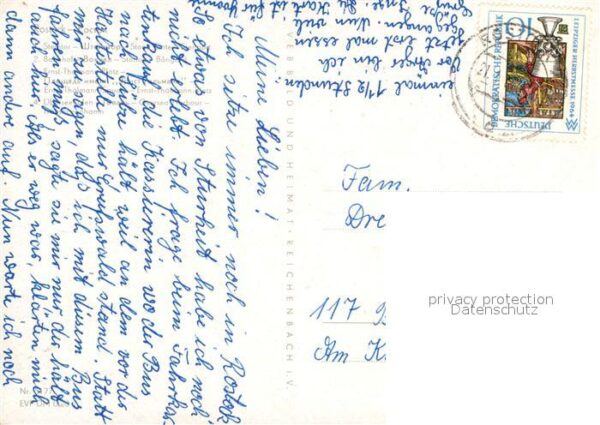 Meine Lieben!
Ich sitze immer noch in Rostock
So etwas von Sturheit habe ich noch
nicht erlebt. Ich frage beim Fahrkar-
tenkauf die Kassiererin wo der Bus
nach Grabe hält weil an dem vor der
Halle nur Greifswald stand. Statt
mir zu sagen, daß ich mit diesem Bus
fahren muß, sagte sie mir nur der hält
auch hier. Als er weg war, klärten mich
dann andre auf. Nun warte ich noch
einmal 1½ Stunden.
Vor Ärger bin ich
jetzt erst mal essen
gegangen. Nun viele
Grüße Inge. Die Karte ist für Yvonne
Fam.
Dre
117 B
Am K
VERLAG BILD UND HEIMAT · REICHENBACH I. V.
LEIPZIGER HERBSTMESSE 1964
10
DEUTSCHE
DEMOKRATISCHE REPUBLIK
privacy protection
Datenschutz